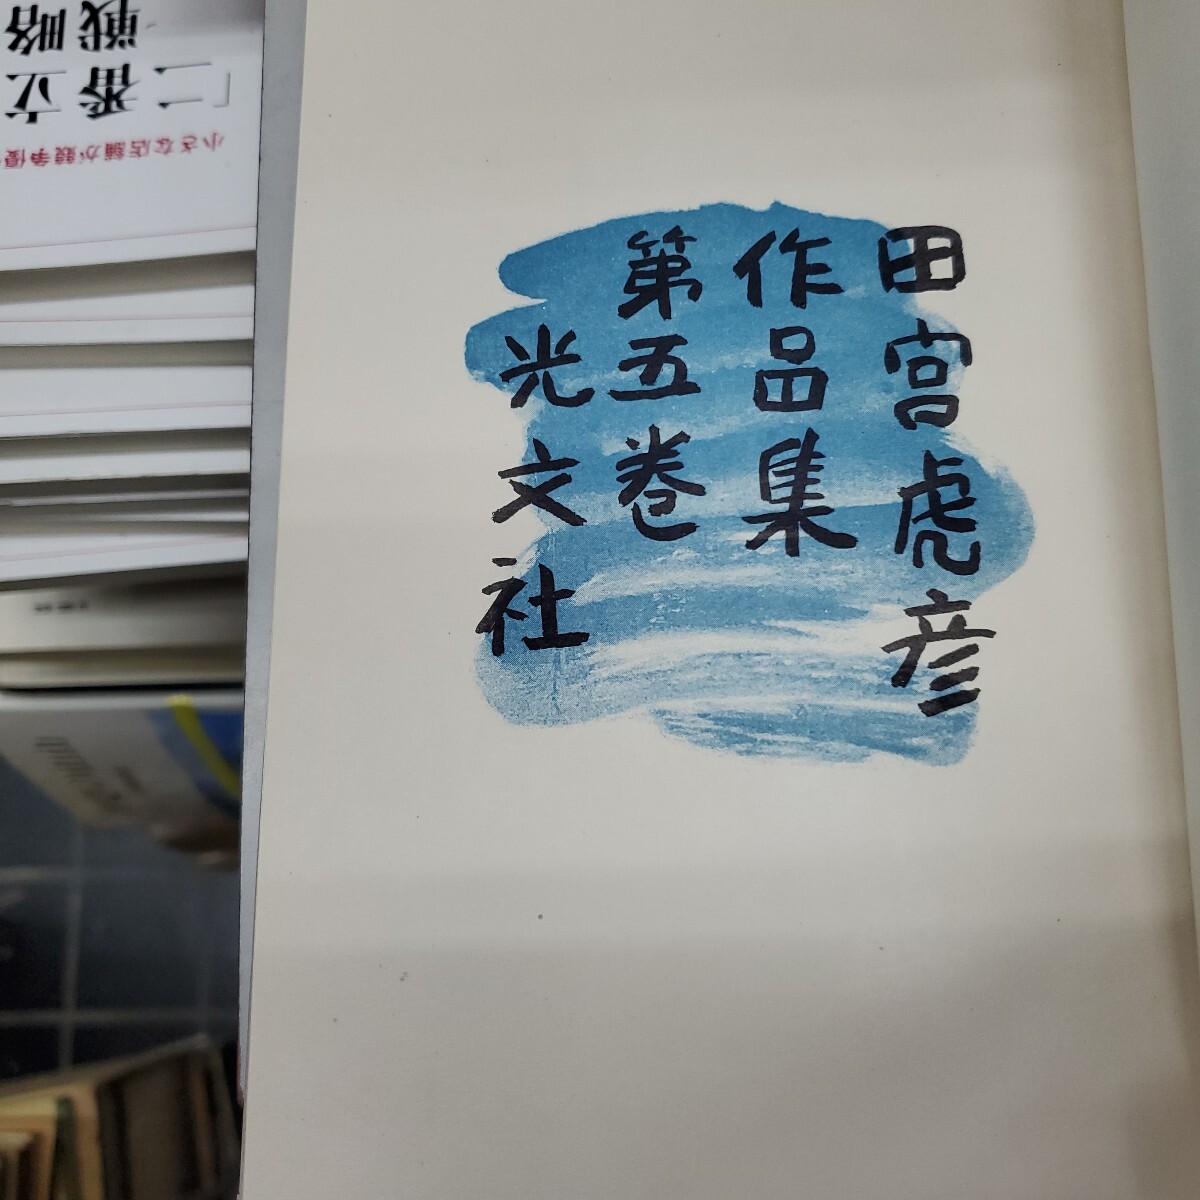 田宮虎彦
作品集
第五巻
光文社
小さな店舗が競争優
「二番立
戦略